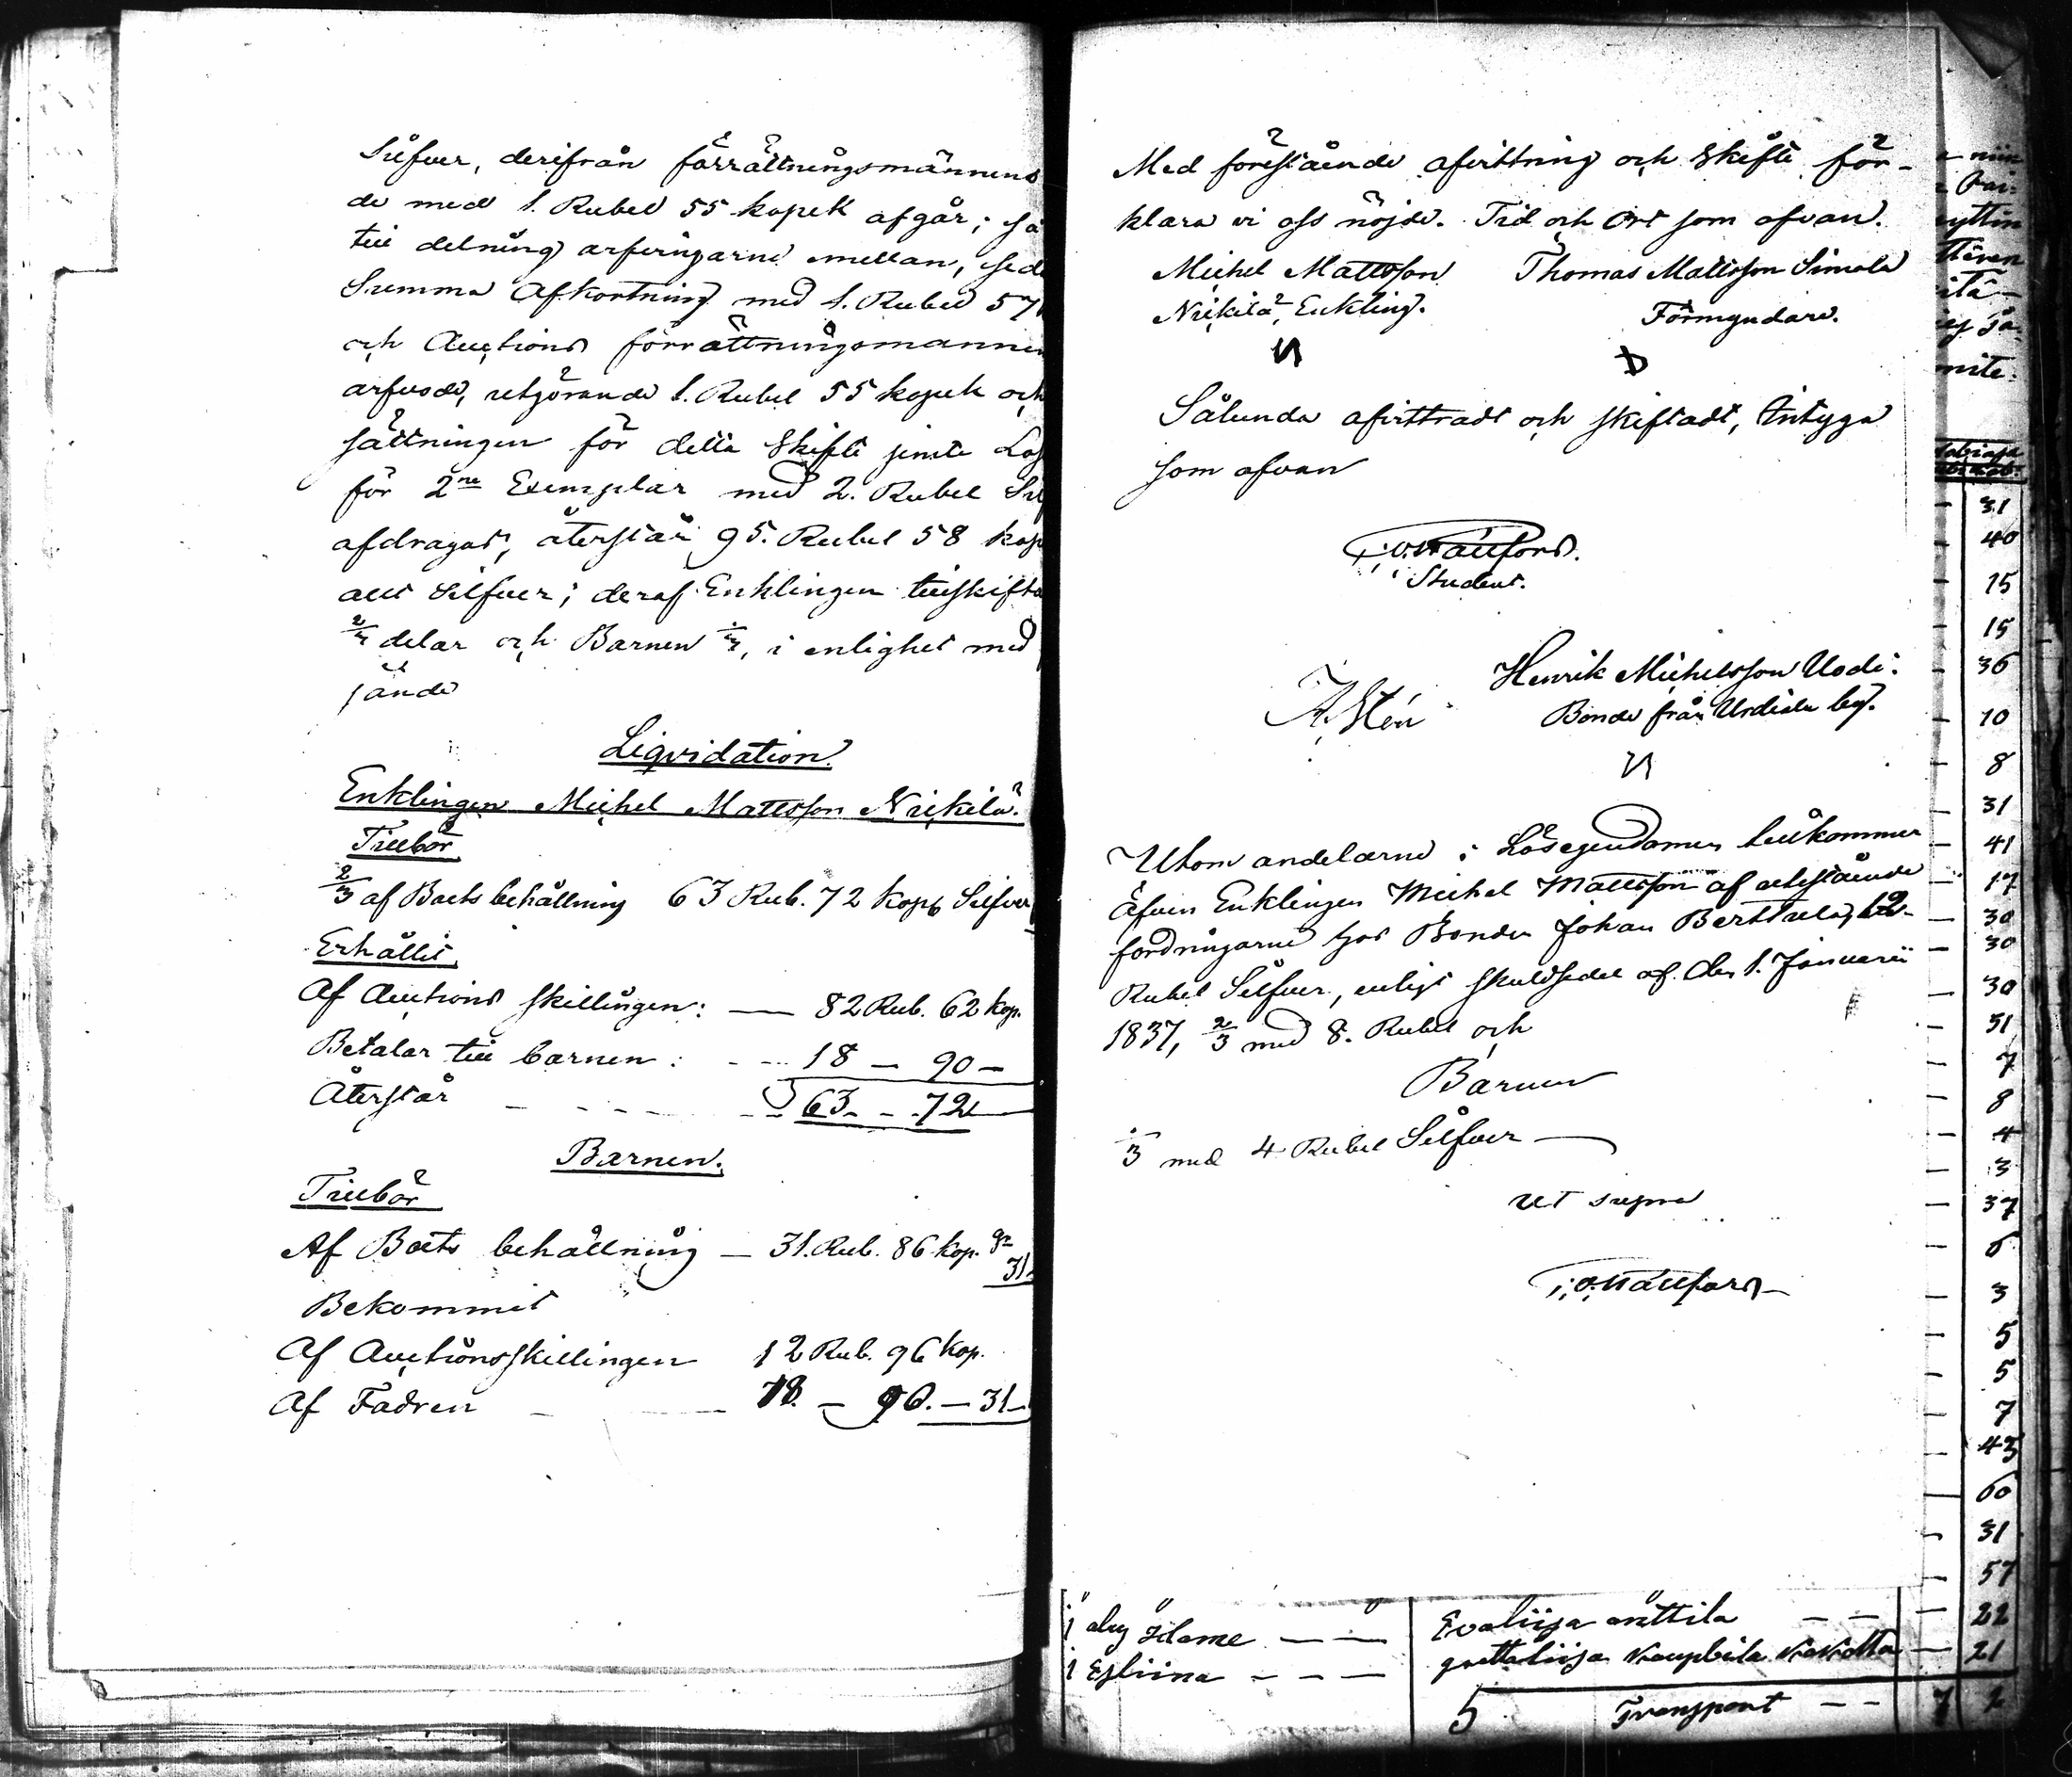 Silfver, derifrån förrättningsmännens
de med 1. Rubel 55 kopek afgår; så
till delning arfvingarne mellan, sed
Summa Afkortning med 1. Rubel 57
och Auctions förrättningsmannen
arfvode, utgörande 1. Rubel 55 kopek och
sättningen för detta Skifte jemte Lös
för 2ne Exemplar med 2. Rubel Sil
afdragas, återstår 95. Rubel 58 kop
allt Silfver; deraf Enklingen tillskifta
2/3 delar och Barnen 1/3, i enlighet med
jande
Liqvidation.
Enklingen Michel Mattsson Nickilä.
Tillbör
2/3 af Boets behållning 63 Rub. 72 kop Silfver
Erhållit,
Af Auctions skillingen: — 82 Rub. 62 kop.
Betalar till barnen: - - - 18 — 90 —
Återstår - - - - - - 63. - - 72
Barnen.
Tillbör
Af Boets behållning — 31. Rub. 86 kop.
31
Bekommit
Af Auctionsskillingen 12 Rub. 96 kop.
Af Fadren - — 18. — 90. — 31 —
Med förestående afvittring och Skifte för-
klara vi oss nöjde. Tid och Ort som ofvan.
Michel Mattsson Thomas Mattsson Simola
Nickilä, Enkling. Förmyndare.
Sålunda afvittradt och skiftadt, Intyga
som ofvan
Student.
Henrik Michelsson Uodi.
A. Sten Bonde från Urdiala by.
Utom andelarne i Lösegendomen tillkommer
Äfven Enklingen Michel Mattsson af utestående
fordringarne hos Bonden Johan Berttula, 12
Rubel Silfver, enligt skuldsedel af den 1. Januarii
1837, 2/3 med 8. Rubel och
Barnen
1/3 med 4 Rubel Silfver —
ut supra
31
40
15
15
36
10
8
31
41
17
30
30
30
51
7
8
4
3
37
6
3
5
5
7
43
60
31
57
Evaliisa anttila — — — 22
1 Esliina — — — grettaliisa 21
5 Transport — —